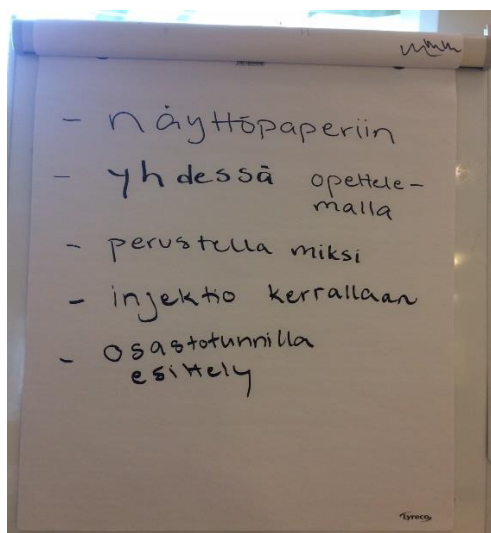 - näyttöpaperiin
- yhdessä opettele-
malla
- perustella miksi
- injektio kerrallaan
- osastotunnilla
esittely